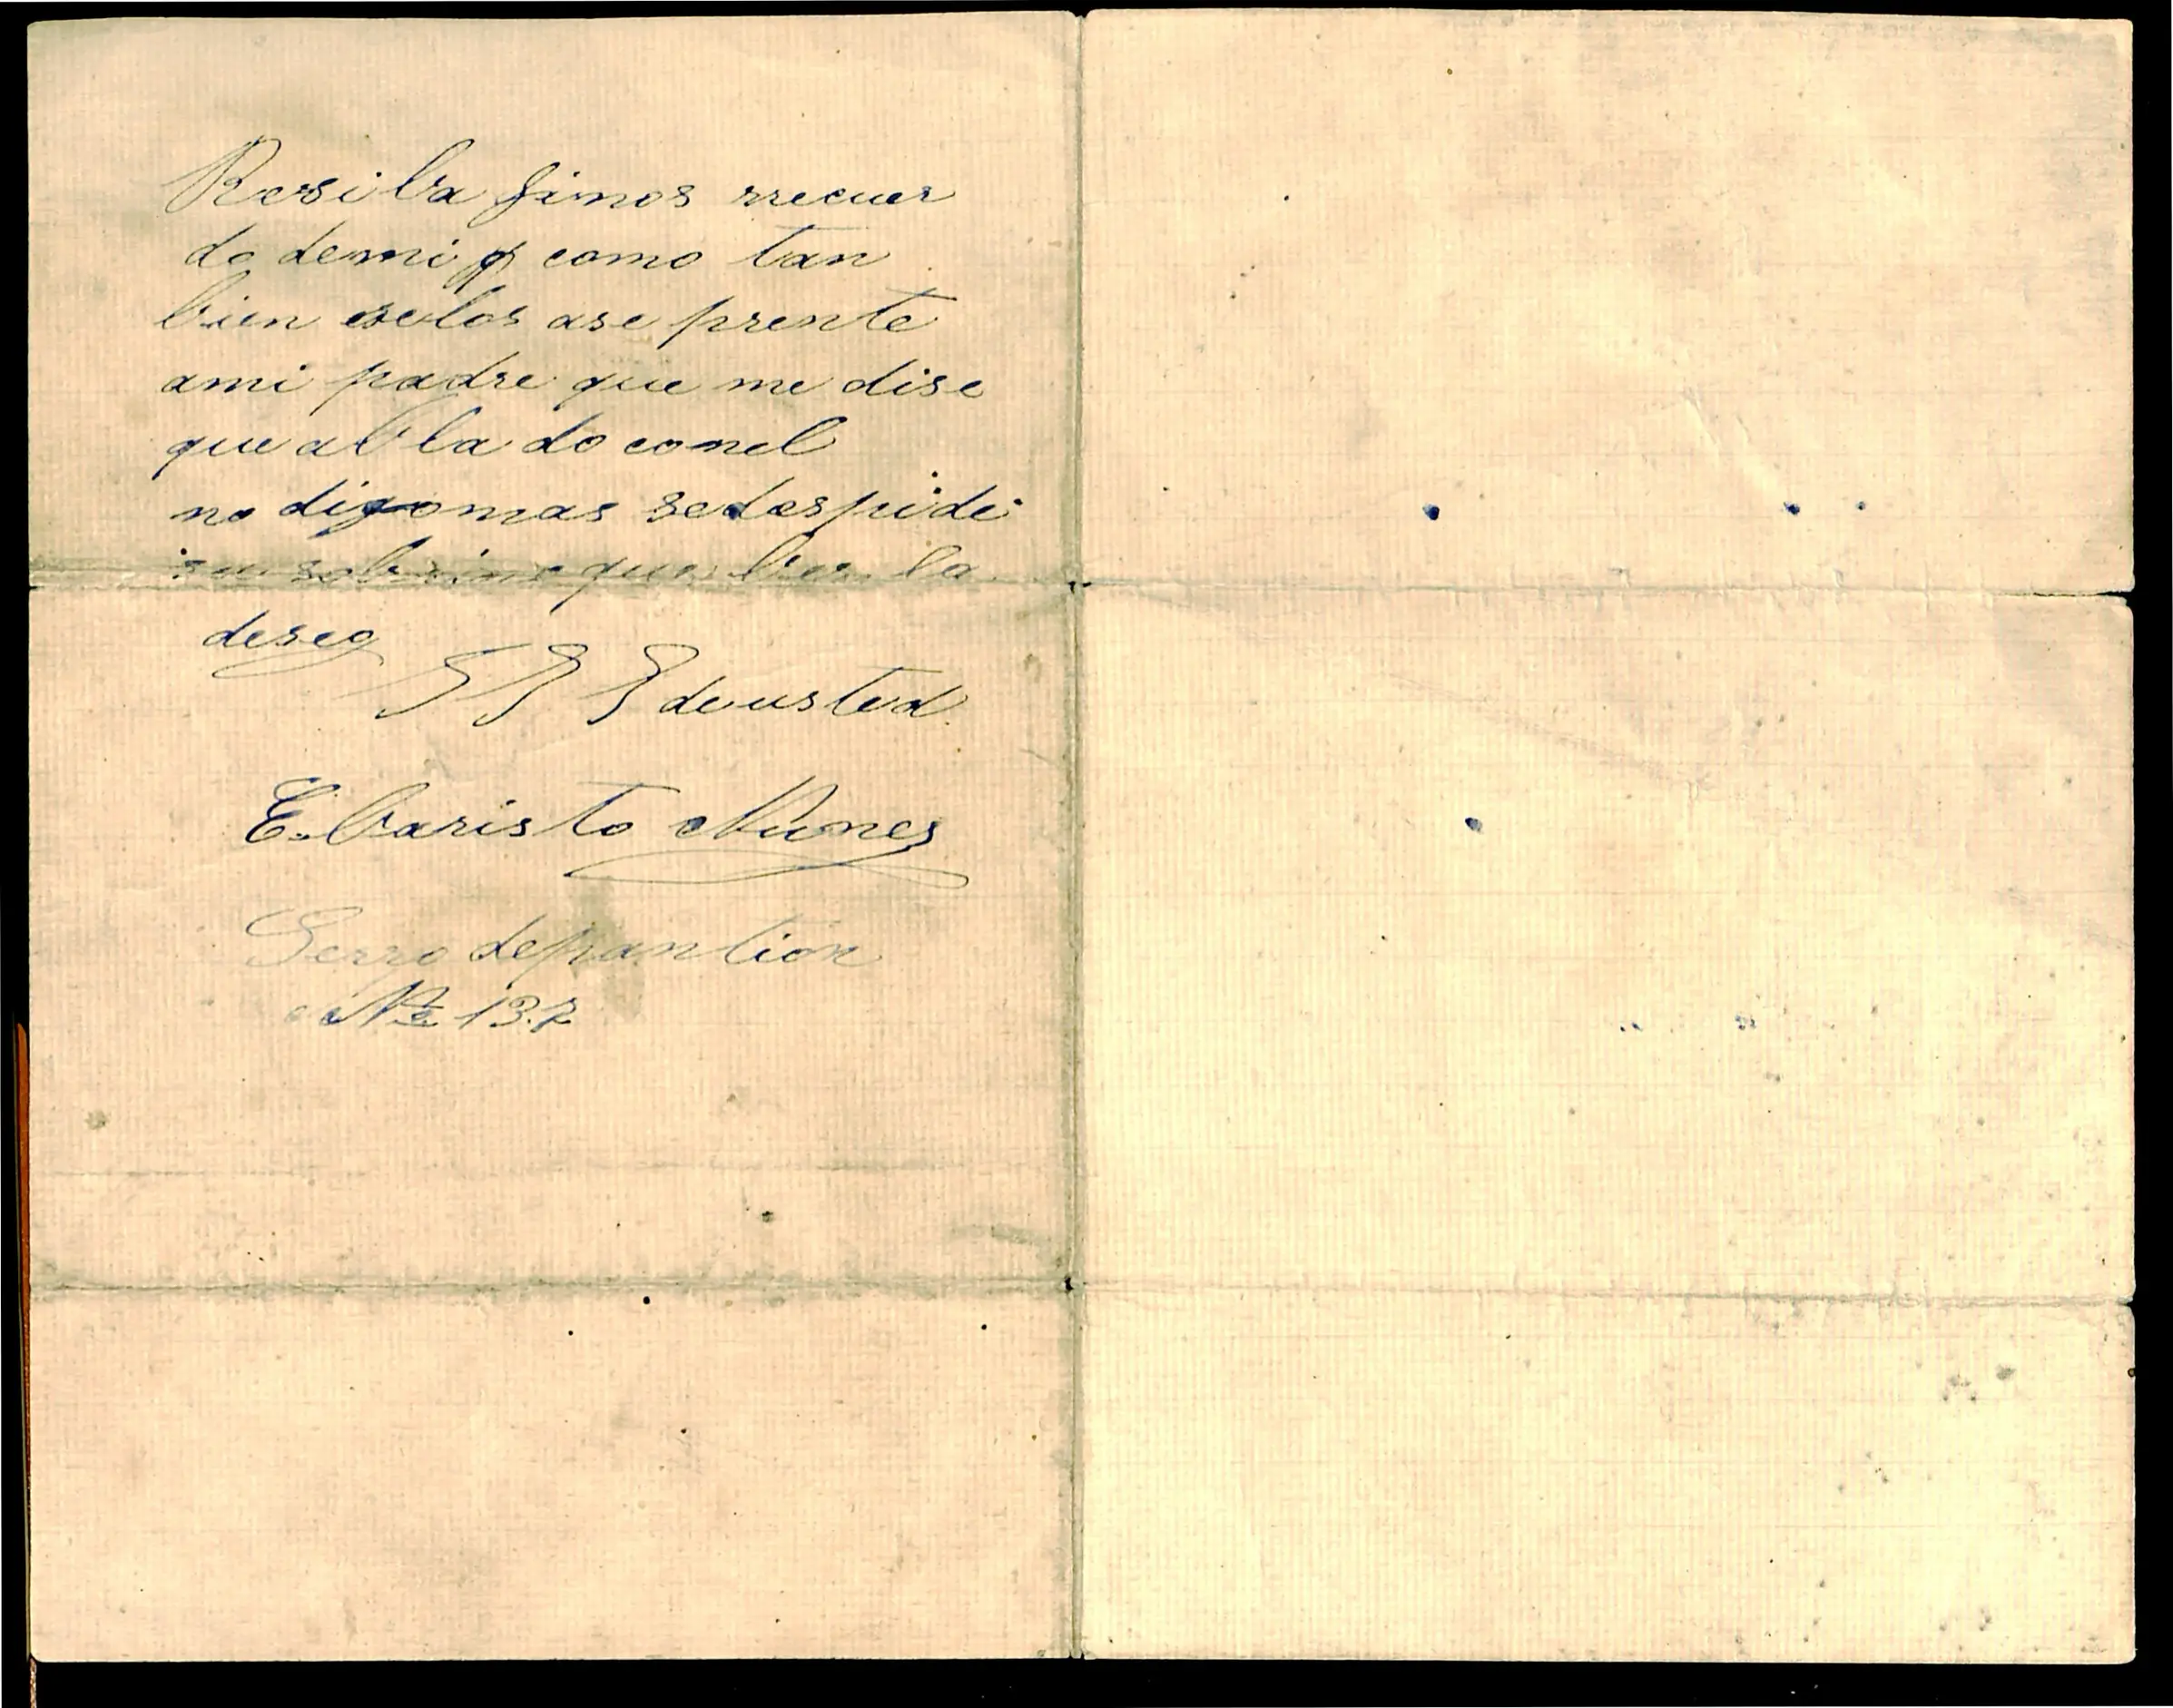 Resiba finos rrecuer
do demi y como tan
bien selos ase prente
ami padre que me dise
que abla do conel
no digo mas sedespide
su sobrino que ber la
desea
SSS deusted
Ebaristo Nunes
Serro depantion
No 132